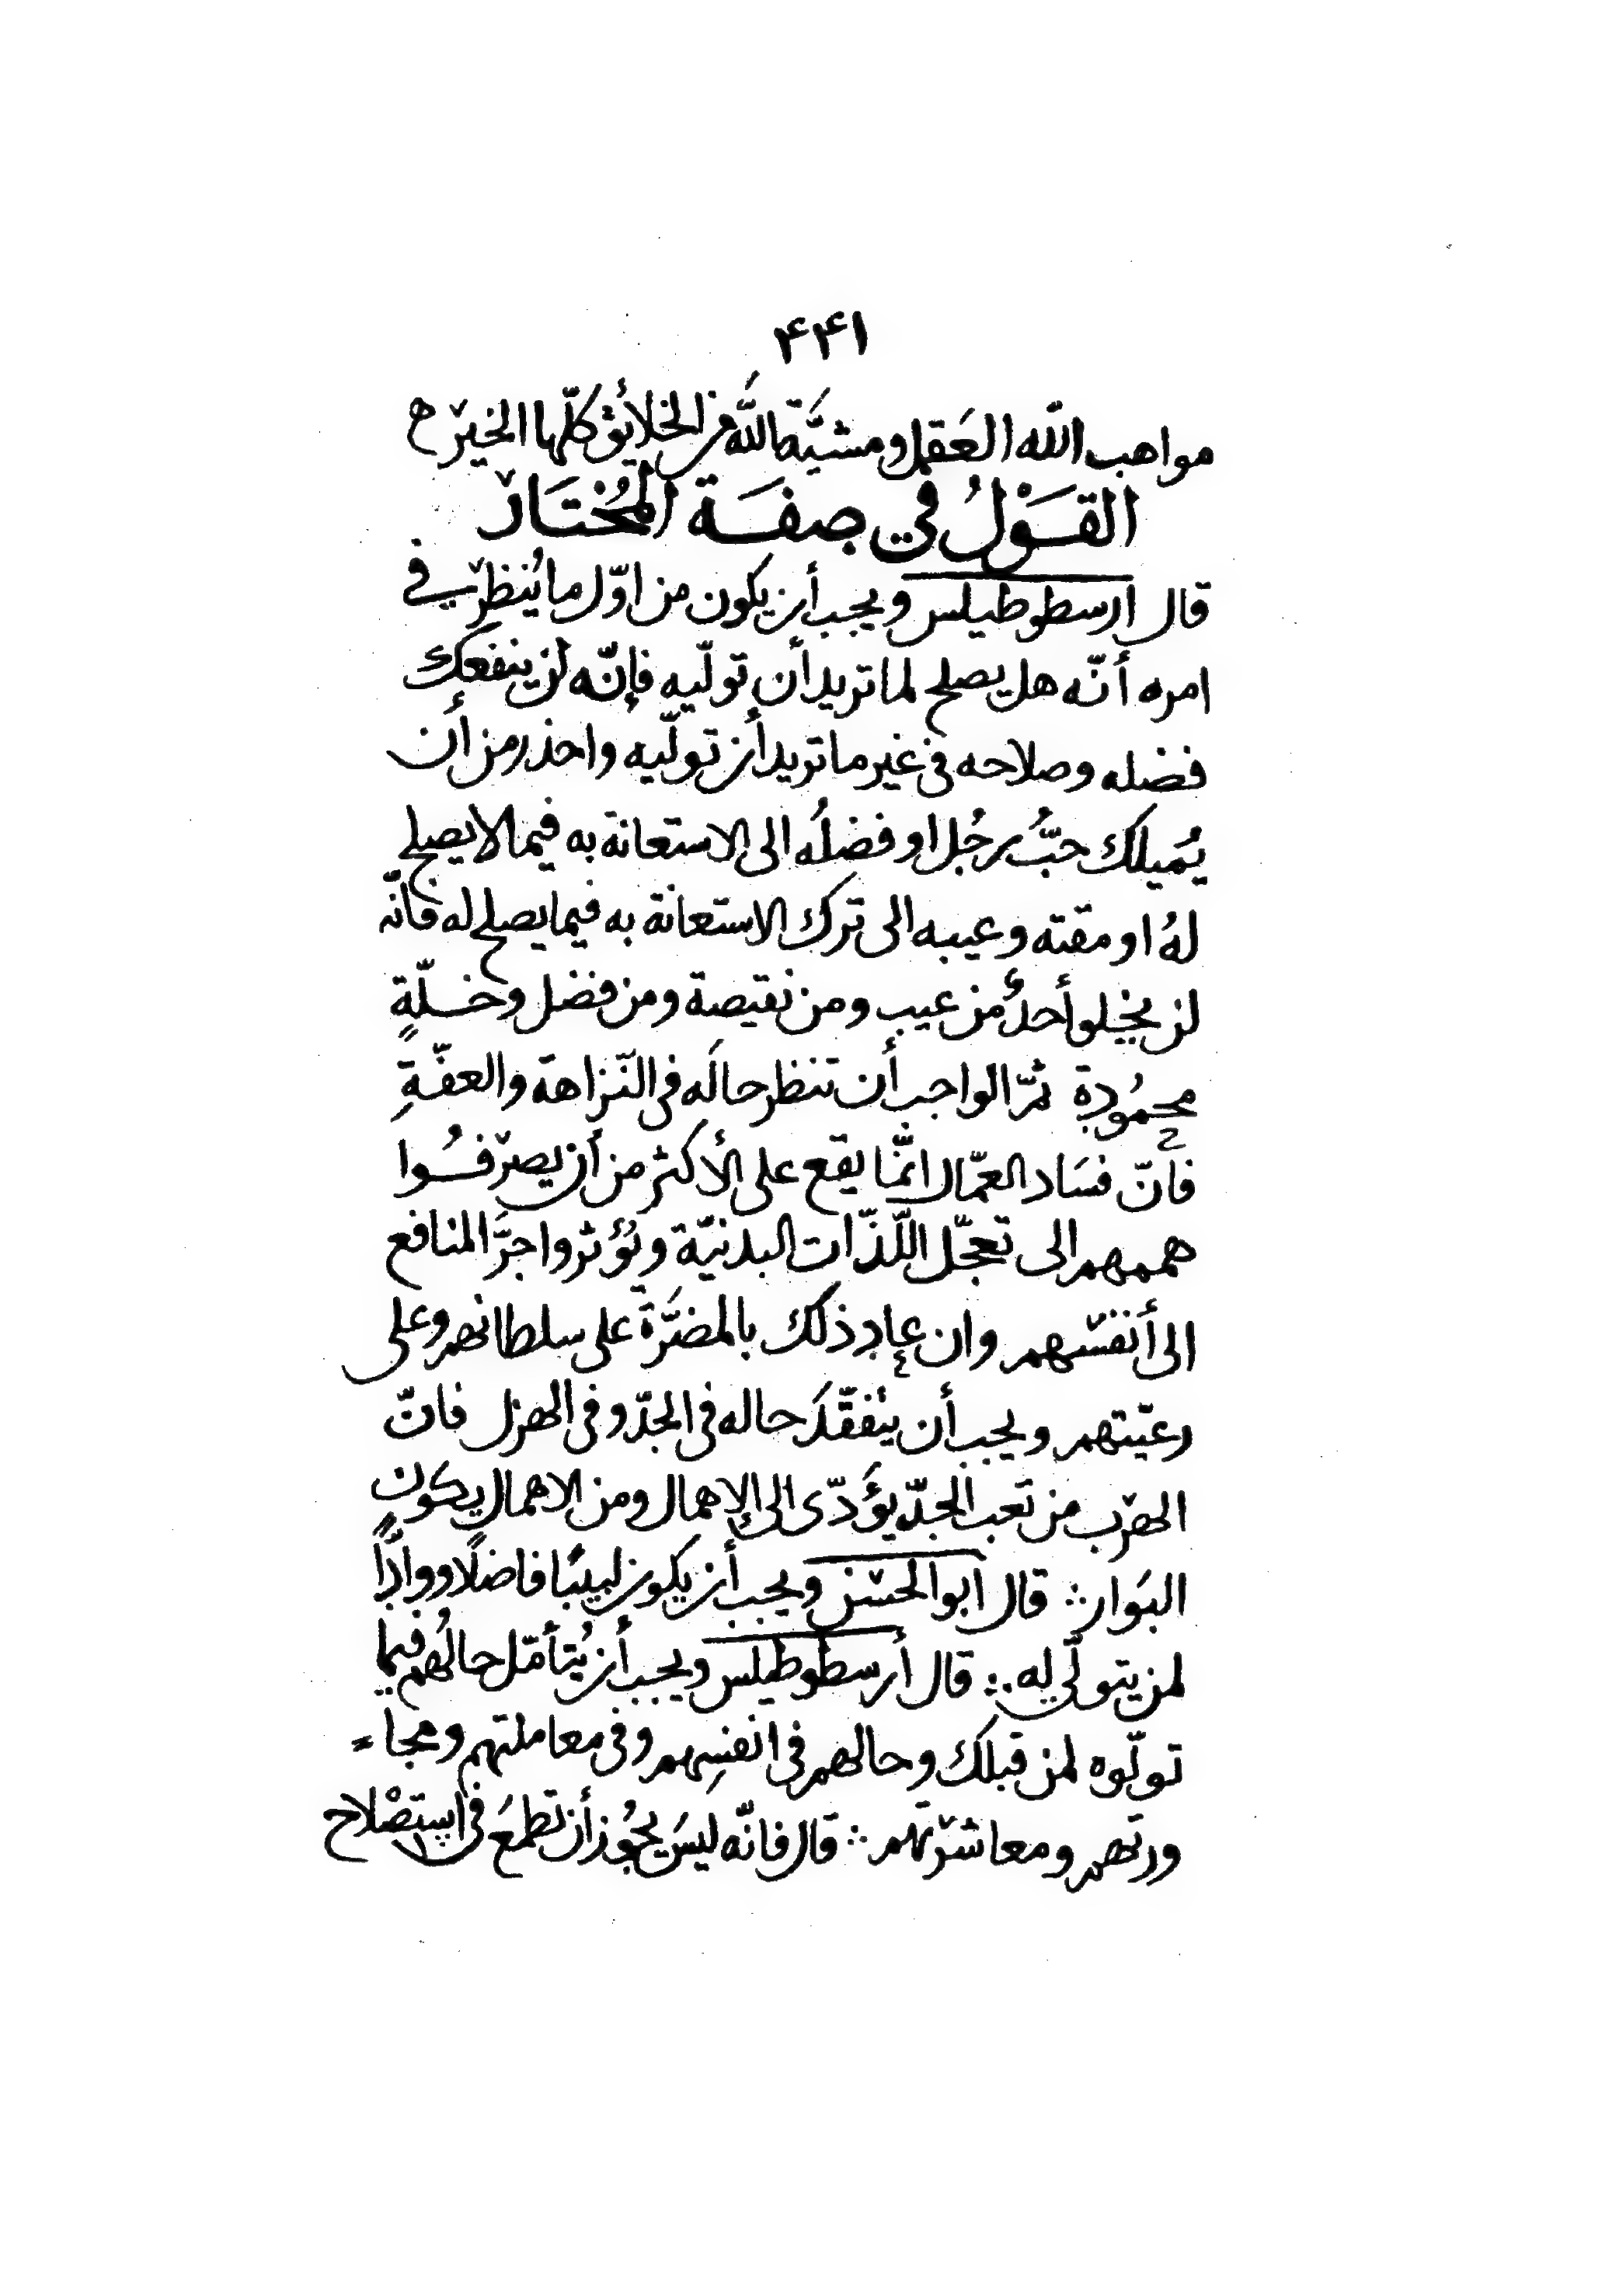 ۴۴۱
مواهب الله العَقل ومشيَّة الله من الخلائق كلّها الخير ح
القَوْلُ في صِفَة المُختَار
قال ارسطوطيلس ويجب أن يكون من اوّل ما يُنظر في
امره أنّه هل يصلح لما تريد أن تولّيه فإنّه لن ينفعك
فضله وصلاحه في غير ما تريد أن تولّيه واحذر من أن
يُميلك حبُّ رجُل او فضلُه الى الاستعانة به فيما لا يصلح
لهُ او مقته وعيبه الى ترك الاستعانة به فيما يصلح له فانّه
لن يخلو أحدٌ من عيب ومن نقيصة ومن فضل وخلّةٍ
محمُودة ثمّ الواجب أن تنظر حالَه في النّزاهة والعفّةِ
فأنّ فسَاد العمّال انّما يقع على الأكثر من أن يصرفُوا
هممهم الى تعجّل اللّذّات البدنيّة ويُؤثروا جرَّ المنافع
الى أنفسهم وان عاد ذلك بالمضرَّة على سلطانهم وعلى
رعيّتهم ويجب أن يتفقّد حاله في الجدّ وفي الهزل فانّ
الهرب من تعب الجدّ يؤدّى الى الإهمال ومن الاهمال يكون
البوَار ∴ قال ابو الحسن ويجب أن يكون لبيبًا فاضلًا ووادًّا
لمن يتولّى له ∴ قال أرسطوطيلس ويجب أن يُتأمّل حالُهم فيما
تولّوه لمن قبلك وحالهم في انفسِهم وفي معاملتهم ومجا
ورتهم ومعاشرتهم ∴ قال فانّه ليسَ يجُوز أن تطمعَ في استصْلاح